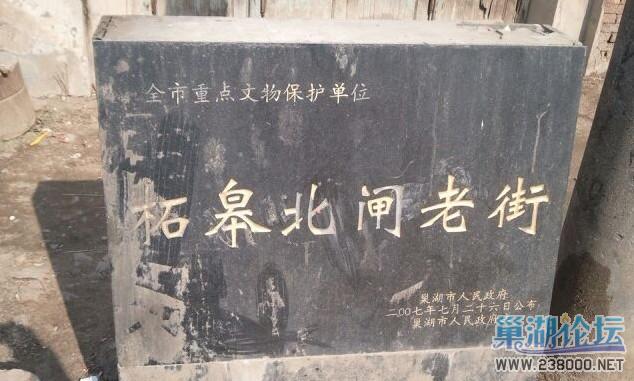 全市重点文物保护单位
柘皋北闸老街
巢湖市人民政府
二00七年七月二十六日公布
巢湖市人民政府
巢湖论坛
www.238000.NET